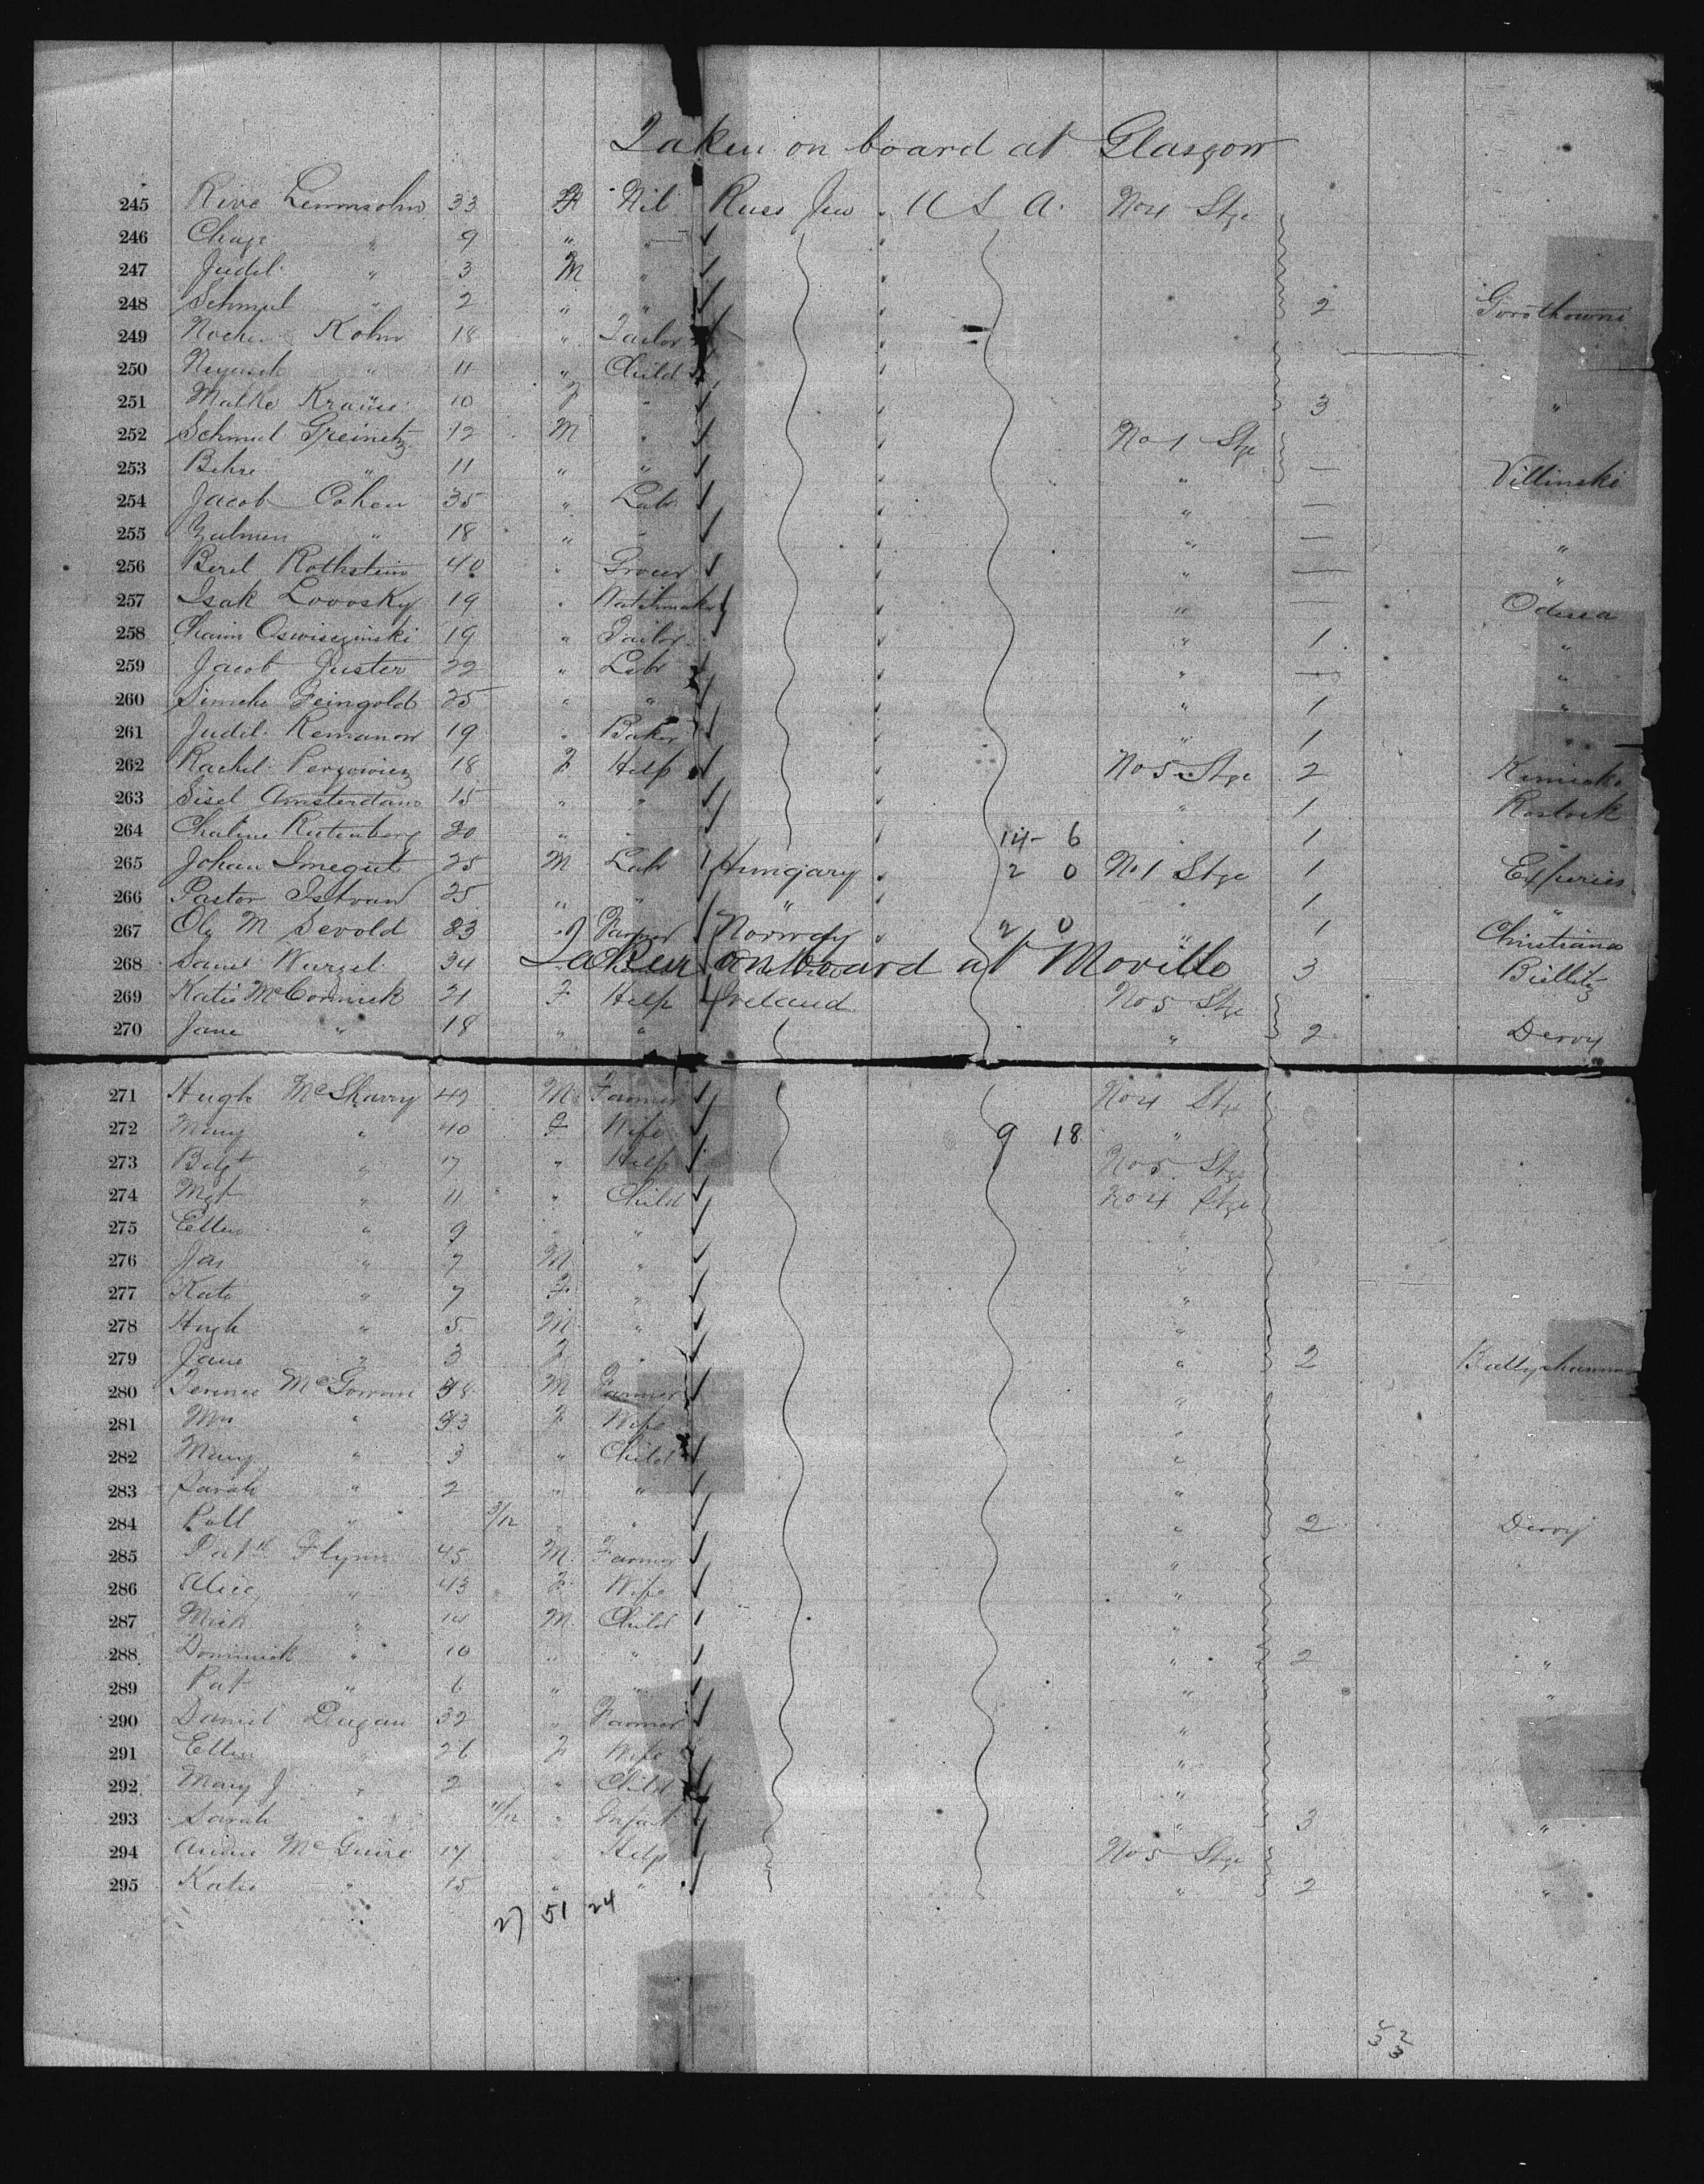 Taken on board at Glasgow
245 Rive 33 F Nil Russ Jew U S A. No 4 Stge
246 " 9 " "
247 Judel " 3 M "
248 Schmul " 2 " " 2
249 Kohn 18 " Tailor
250 " 11 " Child
251 Malke Krause 10 F " 3 "
252 Schmul 12 M " No 1 Stge
253 " 11 " " " — Villinski
254 Jacob Cohen 35 " Labr " —
255 Zalmen " 18 " " " — "
256 Berel Rothstein 40 " Grocer " — "
257 Isak Lovosky 19 " Watchmaker " — Odessa
258 Chaim 19 " Tailor " 1 "
259 Jacob Juster 22 " Labr " — "
260 Feingold 25 " " " 1 "
261 Judel 19 " Baker " 1
262 Rachel 18 F Help No 5 Stge 2
263 Sisel Amsterdam 15 " " " 1 Rostock
264 20 " " 14 - 6 " 1 "
265 Johan 25 M Labr Hungary 2 0 No 1 Stge 1
266 Pastor Istvan 25 " " " " 1 "
267 Ole M Sevold 23 " Farmer Norway 2 0 " 1 Christiana
268 Wurzel 34 3 Biellitz
Taken on board at Moville
269 Katie McCormick 21 F Help Ireland No 5 Stge
270 Jane " 18 " " " 2 Derry
271 Hugh McSharry 42 M Farmer No 4 Stge
272 Mary " 40 F Wife 9 18 "
273 Bdgt " 17 " Help No 5 Stge
274 Mgt " 11 " Child No 4 Stge
275 Ellen " 9 " " "
276 Jas " 7 M " "
277 Kate " 7 F " "
278 Hugh " 5 M " "
279 Jane " 3 F " " 2
280 Terence McGowan 38 M Farmer "
281 Mrs " 33 F Wife "
282 Mary " 3 " Child "
283 Sarah " 2 " " "
284 " 3/12 " " " 2 Derry
285 Patk Flynn 45 M Farmer "
286 Alice " 43 F Wife "
287 Mick " 14 M Child "
288 Dominick " 10 " " " 2 "
289 Pat " 6 " " " "
290 Daniel Dugan 32 " Farmer "
291 Ellen " 26 F Wife "
292 Mary J " 2 " Child "
293 Sarah " 11/12 " Infant " 3 "
294 Annie McGuire 17 " Help No 5 Stge
295 Katie " 15 " " " 2 "
27 51 24